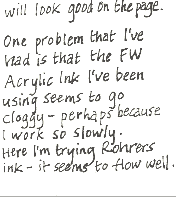 will look good on the page.
One problem that I've
had is that the FW
Acrylic Ink I've been
using seems to go
cloggy - perhaps because
I work so slowly.
Here I'm trying Rohrers
ink - it seems to flow well.